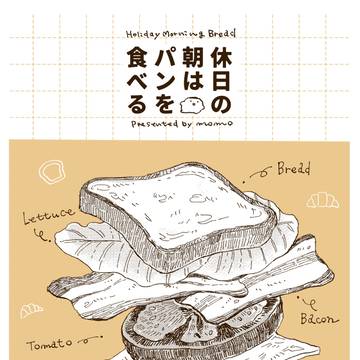 Holiday Morning Bread
休日の
朝は
パンを
食べる
Presented by momo
Bread
Lettuce
Bacon
Tomato